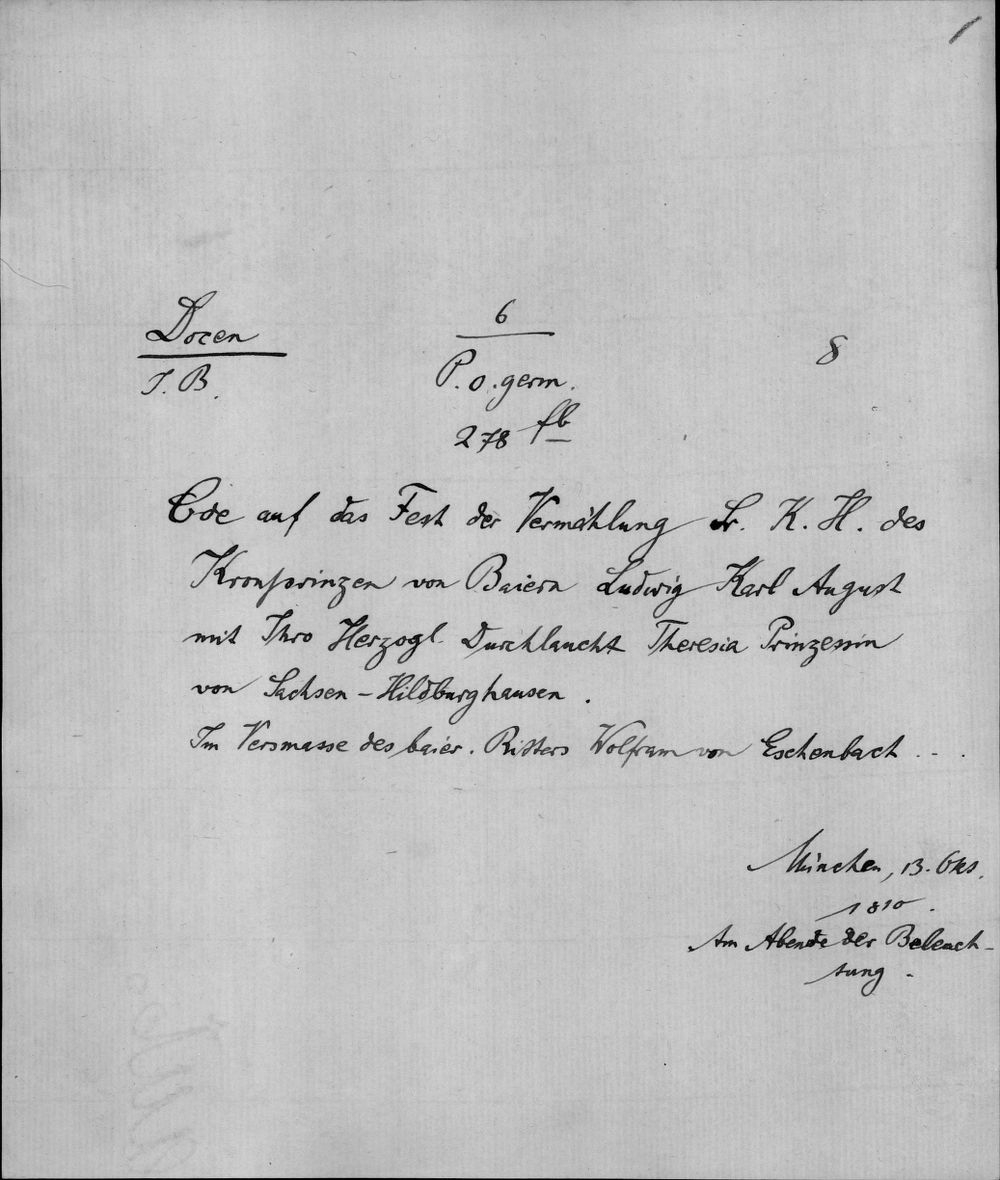 Docen
J. B.
6
P. o. germ.
278 fb
8
Ode auf das Fest der Vermählung Sr. K. H. des
Kronprinzen von Baiern Ludwig Karl August
mit Ihro Herzogl. Durchlaucht Theresia Prinzessin
von Sachsen-Hildburghausen.
Im Versmasse des baier. Ritters Wolfram von Eschenbach . . .
München, 13. Okt.
1810.
Am Abende der Beleuch-
tung.